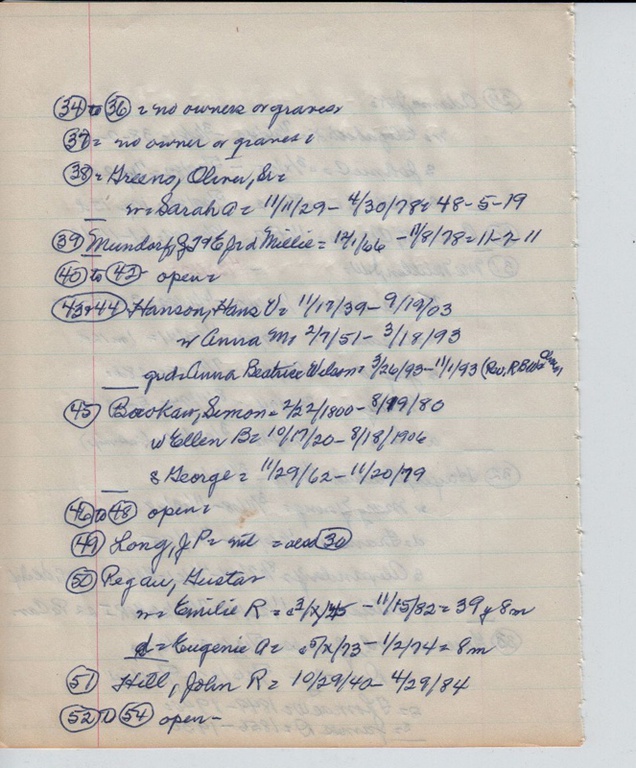 34 to 36 = no owners or graves
37 = no owner or graves
38 = Greeno, Oliver, Sr =
w = Sarah A = 11/11/29 - 4/30/78 = 48-5-19
39 Mundorf, J T & E grd Millie = -11/8/78 = 11-7-11
40 to 42 open =
43 & 44 Hanson, Hans V = 11/17/39 - 9/19/03
w Anna M = 2/7/51 - 3/18/93
grd = Anna Beatrice Welson = 3/26/93 - 11/1/93 (Rev, R B
45 Bowkaw, Simon = 2/22/1800 - 8/19/80
w Ellen B = 10/17/20 - 8/18/1906
s George = 11/29/62 - 11/20/79
46 to 48 open =
49 Long, J P = = also 30
50 Pegau, Gustav
w = Emilie R = - 11/15/82 = 39 y 8 m
d = Eugenie A = c5/x/73 - 1/2/74 = 8 m
51 Hill, John R = 10/29/40 - 4/29/84
52 to 54 open -